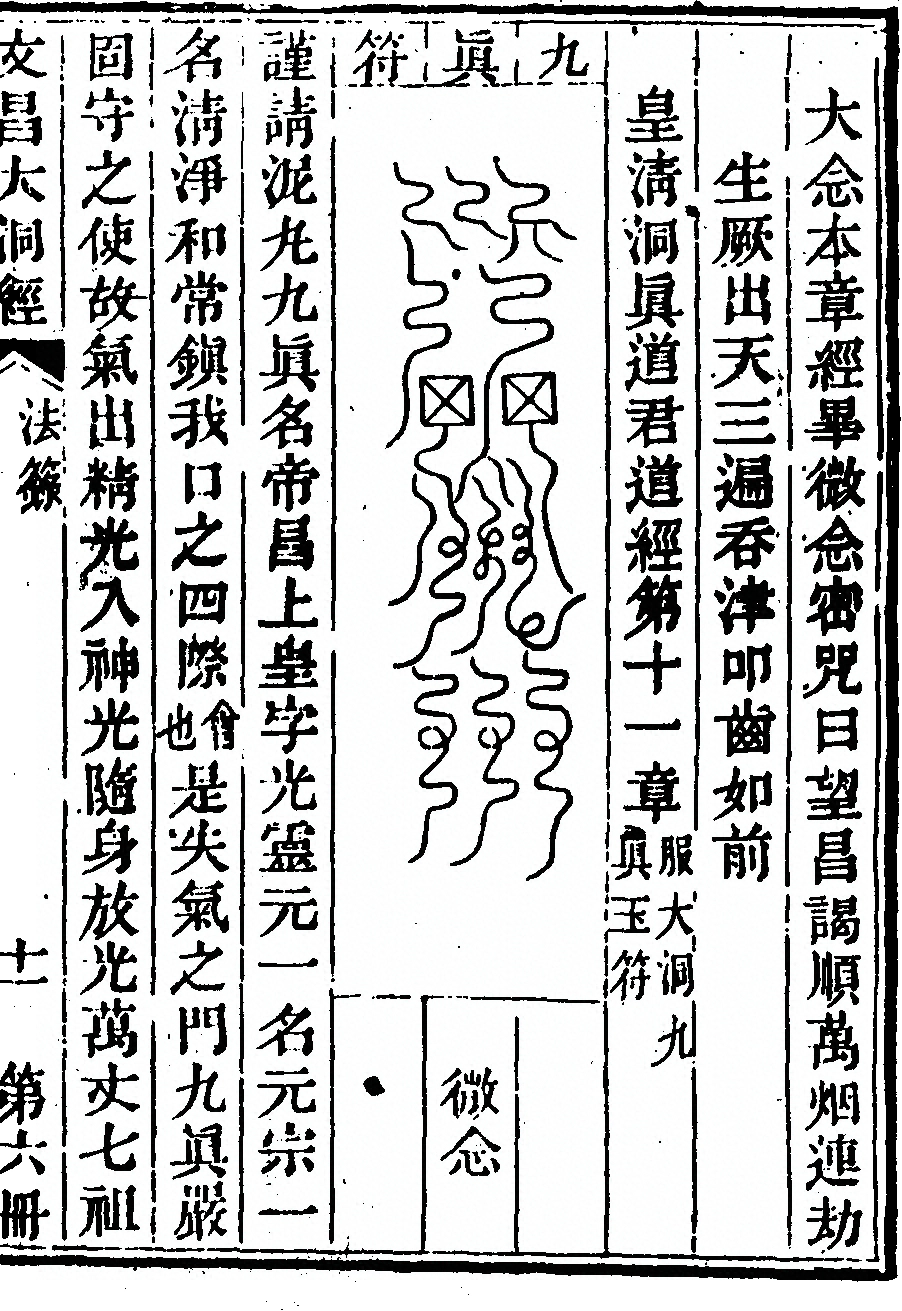 大念本章經畢微念密咒曰望昌謁順萬烟連劫
生厥出天三遍吞津叩齒如前
皇清洞眞道君道經第十一章服大洞九眞玉符
九眞符
微念
謹請泥丸九眞名帝昌上皇字光靈元一名元宗一
名清淨和常鎭我口之四際會也是失氣之門九眞嚴
固守之使故氣出精光入神光隨身放光萬丈七祖
文昌大洞經
法籙
十一
第六冊